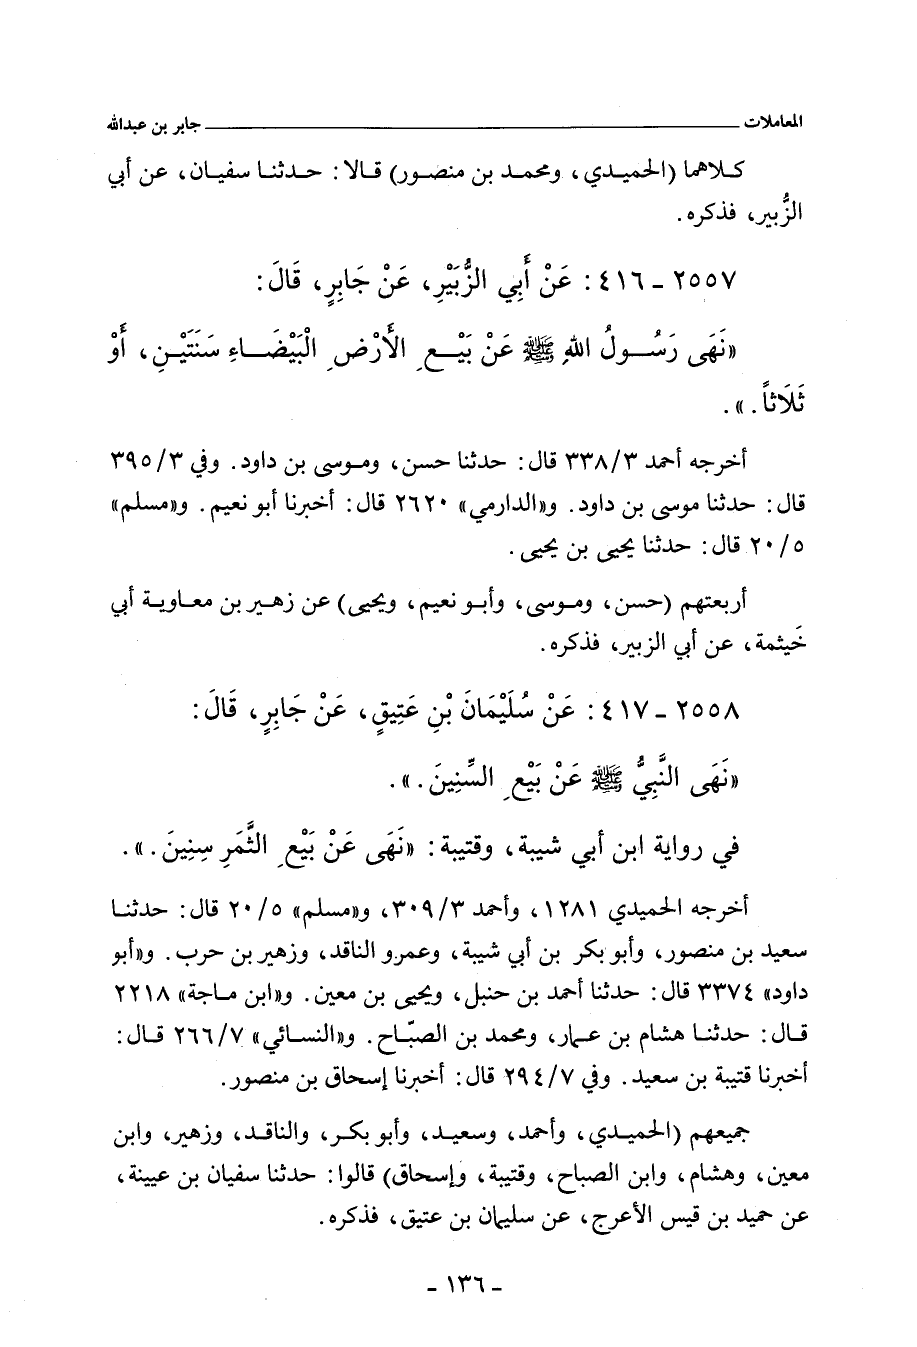 المعاملات ــــــــــ جابر بن عبدالله
كلاهما (الحميدي، ومحمد بن منصور) قالا: حدثنا سفيان، عن أبي
الزُّبير، فذكره.
٢٥٥٧ - ٤١٦: عَنْ أَبِي الزُّبَيْرِ، عَنْ جَابِرٍ، قَالَ:
«نَهَى رَسُولُ اللهِ ﷺ عَنْ بَيْعِ الأَرْضِ الْبَيْضَاءِ سَنَتَيْنِ، أَوْ
ثَلَاثاً.».
أخرجه أحمد ٣٣٨/٣ قال: حدثنا حسن، وموسى بن داود. وفي ٣٩٥/٣
قال: حدثنا موسى بن داود. و«الدارمي» ٢٦٢٠ قال: أخبرنا أبو نعيم. و«مسلم»
٢٠/٥ قال: حدثنا يحيى بن يحيى.
أربعتهم (حسن، وموسى، وأبو نعيم، ويحيى) عن زهير بن معاوية أبي
خَيثمة، عن أبي الزبير، فذكره.
٢٥٥٨ - ٤١٧: عَنْ سُلَيْمَانَ بْنِ عَتِيقٍ، عَنْ جَابِرٍ، قَالَ:
«نَهَى النَّبِيُّ ﷺ عَنْ بَيْعِ السِّنِينَ.».
في رواية ابن أبي شيبة، وقتيبة: «نَهَى عَنْ بَيْعِ الثَّمَرِ سِنِينَ.».
أخرجه الحميدي ١٢٨١، وأحمد ٣٠٩/٣، و«مسلم» ٢٠/٥ قال: حدثنا
سعيد بن منصور، وأبو بكر بن أبي شيبة، وعمرو الناقد، وزهير بن حرب. و«أبو
داود» ٣٣٧٤ قال: حدثنا أحمد بن حنبل، ويحيى بن معين. و«ابن ماجة» ٢٢١٨
قال: حدثنا هشام بن عمار، ومحمد بن الصبّاح. و«النسائي» ٢٦٦/٧ قال:
أخبرنا قتيبة بن سعيد. وفي ٢٩٤/٧ قال: أخبرنا إسحاق بن منصور.
جميعهم (الحميدي، وأحمد، وسعيد، وأبو بكر، والناقد، وزهير، وابن
معين، وهشام، وابن الصباح، وقتيبة، وإسحاق) قالوا: حدثنا سفيان بن عيينة،
عن حميد بن قيس الأعرج، عن سليمان بن عتيق، فذكره.
- ١٣٦ -